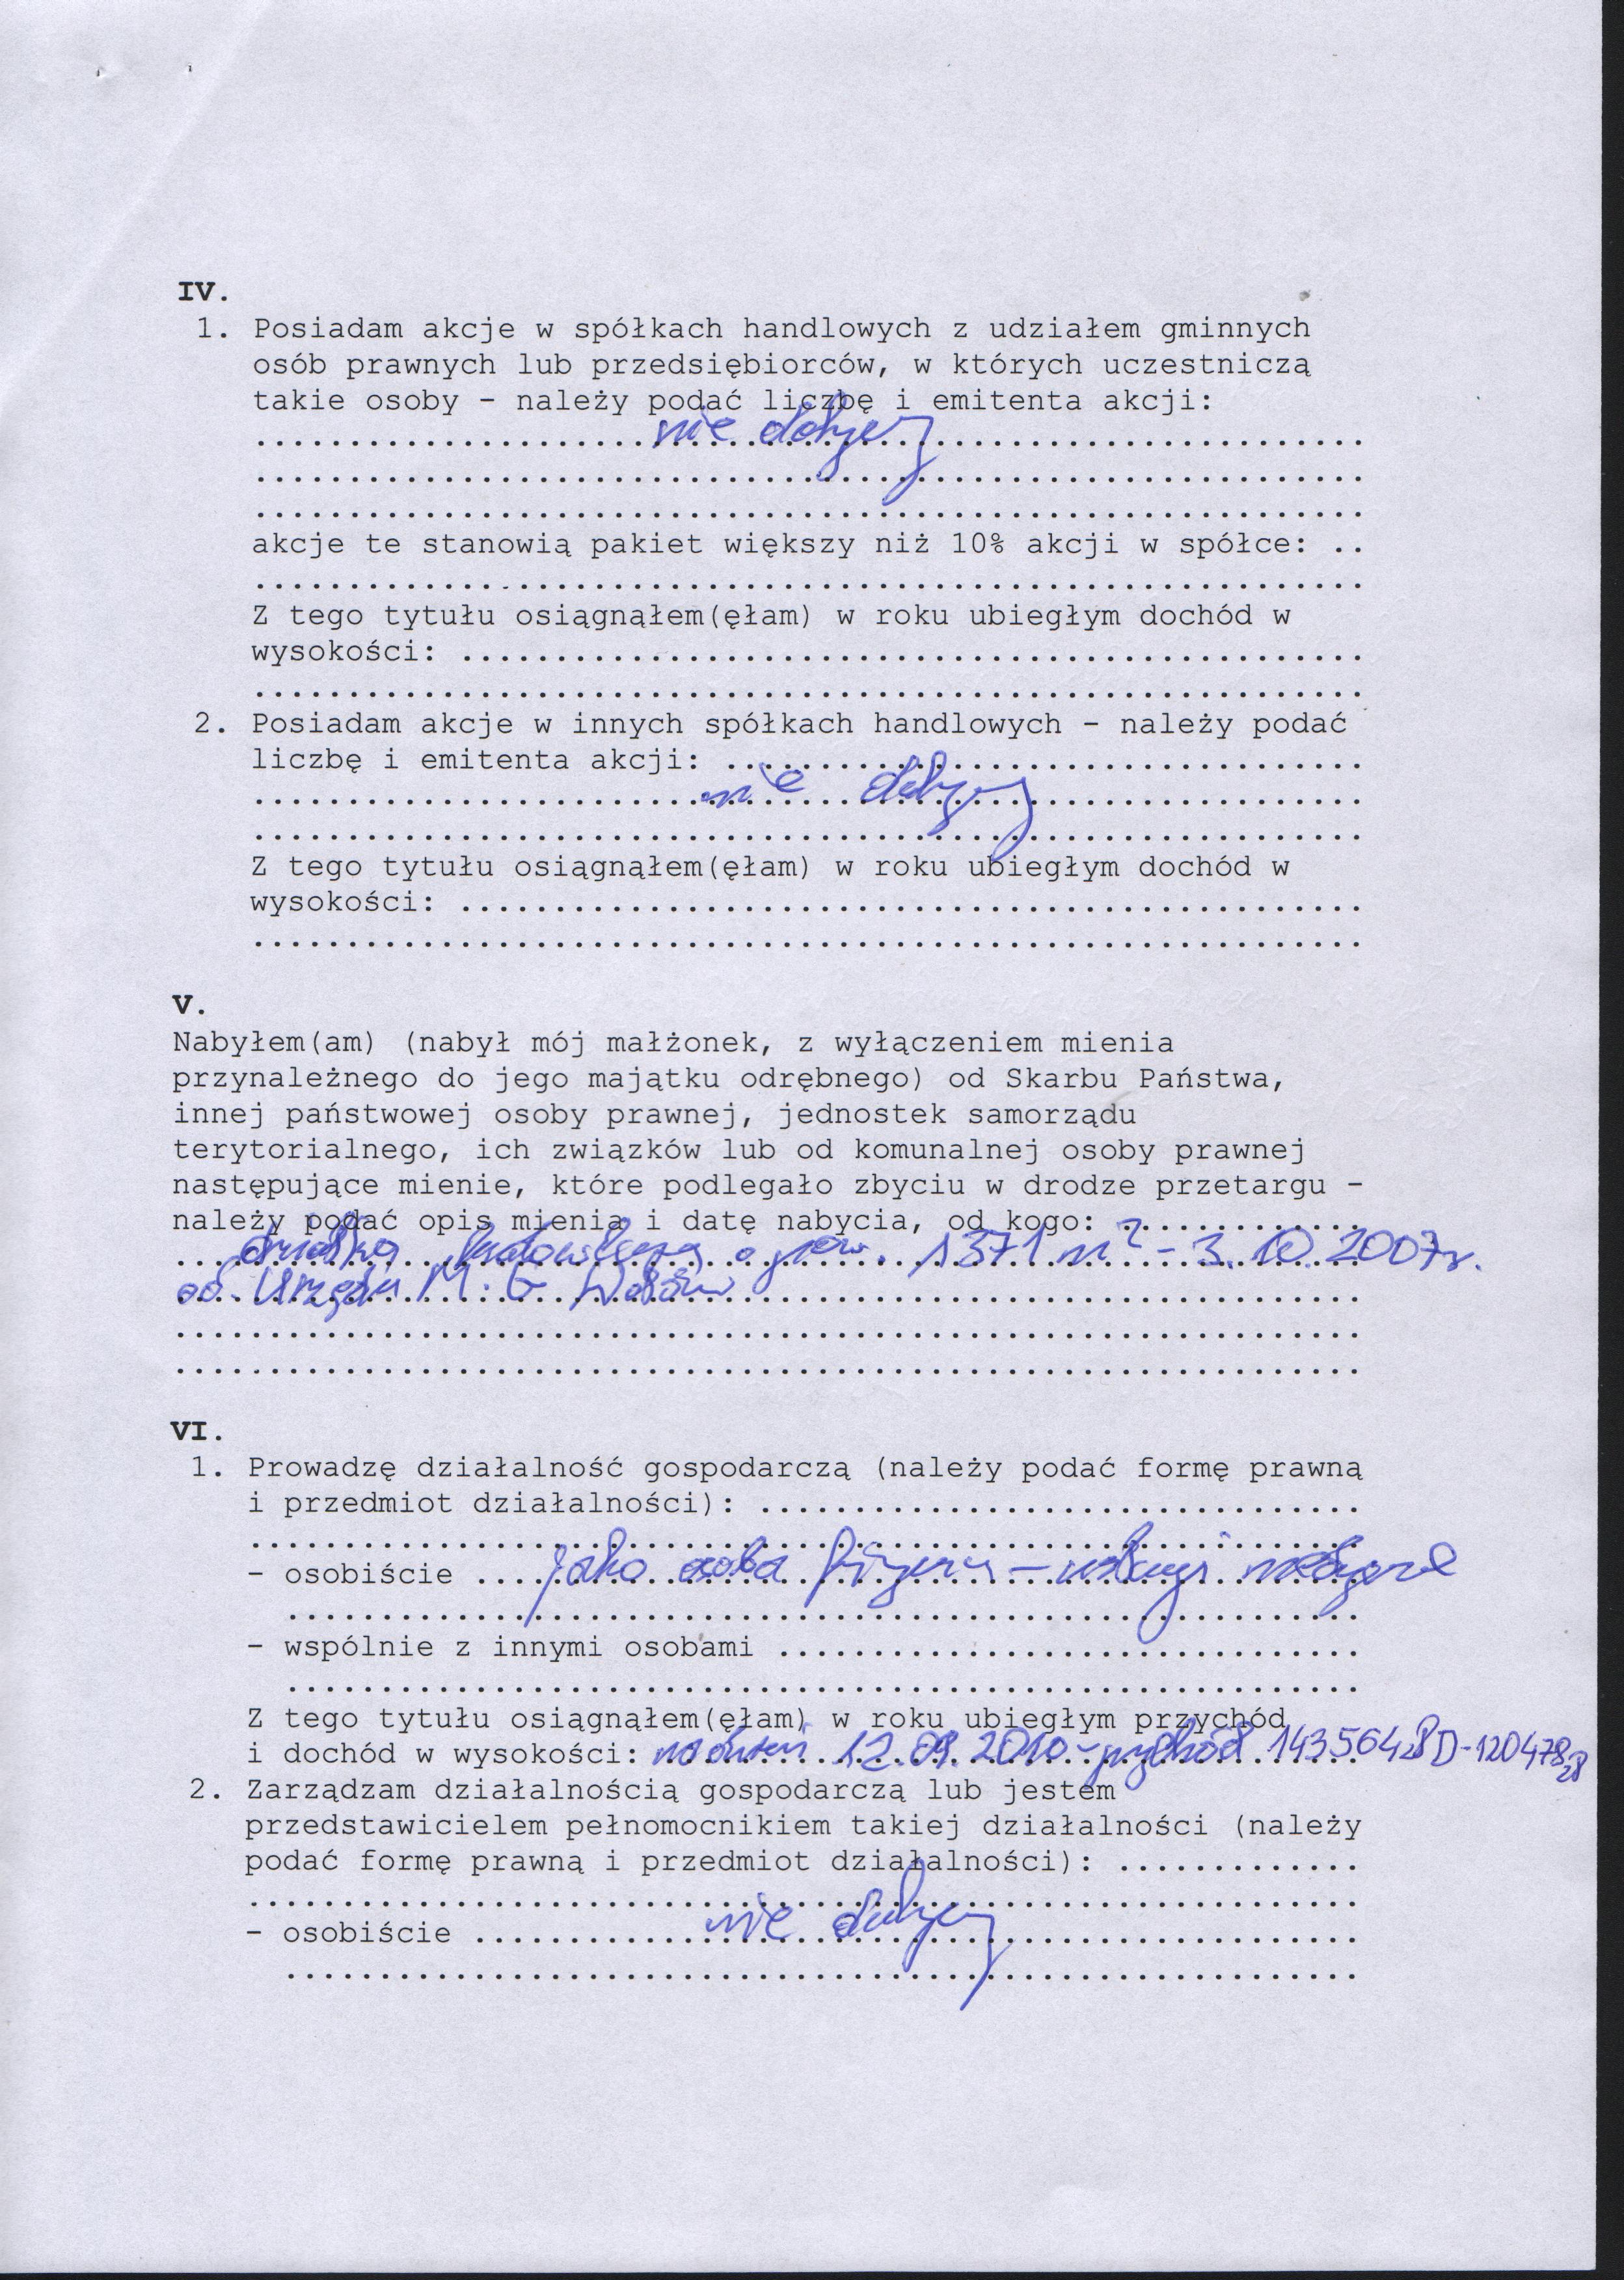 IV.
1. Posiadam akcje w spółkach handlowych z udziałem gminnych
osób prawnych lub przedsiębiorców, w których uczestniczą
takie osoby - należy podać liczbę i emitenta akcji:
nie dotyczy
akcje te stanowią pakiet większy niż 10% akcji w spółce: ..
Z tego tytułu osiągnąłem(ęłam) w roku ubiegłym dochód w
wysokości: ................................................
2. Posiadam akcje w innych spółkach handlowych - należy podać
liczbę i emitenta akcji: ..................................
nie dotyczy
Z tego tytułu osiągnąłem(ęłam) w roku ubiegłym dochód w
wysokości: ................................................
V.
Nabyłem(am) (nabył mój małżonek, z wyłączeniem mienia
przynależnego do jego majątku odrębnego) od Skarbu Państwa,
innej państwowej osoby prawnej, jednostek samorządu
terytorialnego, ich związków lub od komunalnej osoby prawnej
następujące mienie, które podlegało zbyciu w drodze przetargu -
należy podać opis mienia i datę nabycia, od kogo: .............
działka budowlana o pow. 1371 m² - 3.10.2007r.
od Urzędu M. G Wołów
VI.
1. Prowadzę działalność gospodarczą (należy podać formę prawną
i przedmiot działalności): ................................
- osobiście jako osoba fizyczna - usługi medyczne
- wspólnie z innymi osobami ...............................
Z tego tytułu osiągnąłem(ęłam) w roku ubiegłym przychód
i dochód w wysokości: na dzień 12.09.2010 - przychód 143564,28 D-120478,28
2. Zarządzam działalnością gospodarczą lub jestem
przedstawicielem pełnomocnikiem takiej działalności (należy
podać formę prawną i przedmiot działalności): .............
- osobiście nie dotyczy